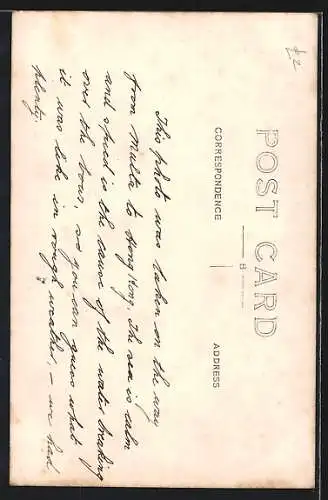 POST CARD
CORRESPONDENCE
ADDRESS
£2
This photo was taken on the way
from Malta to Hong Kong. The sea is calm
and speed is the cause of the water breaking
over the bows, so you can guess what
it was like in rough weather, – we had
plenty.